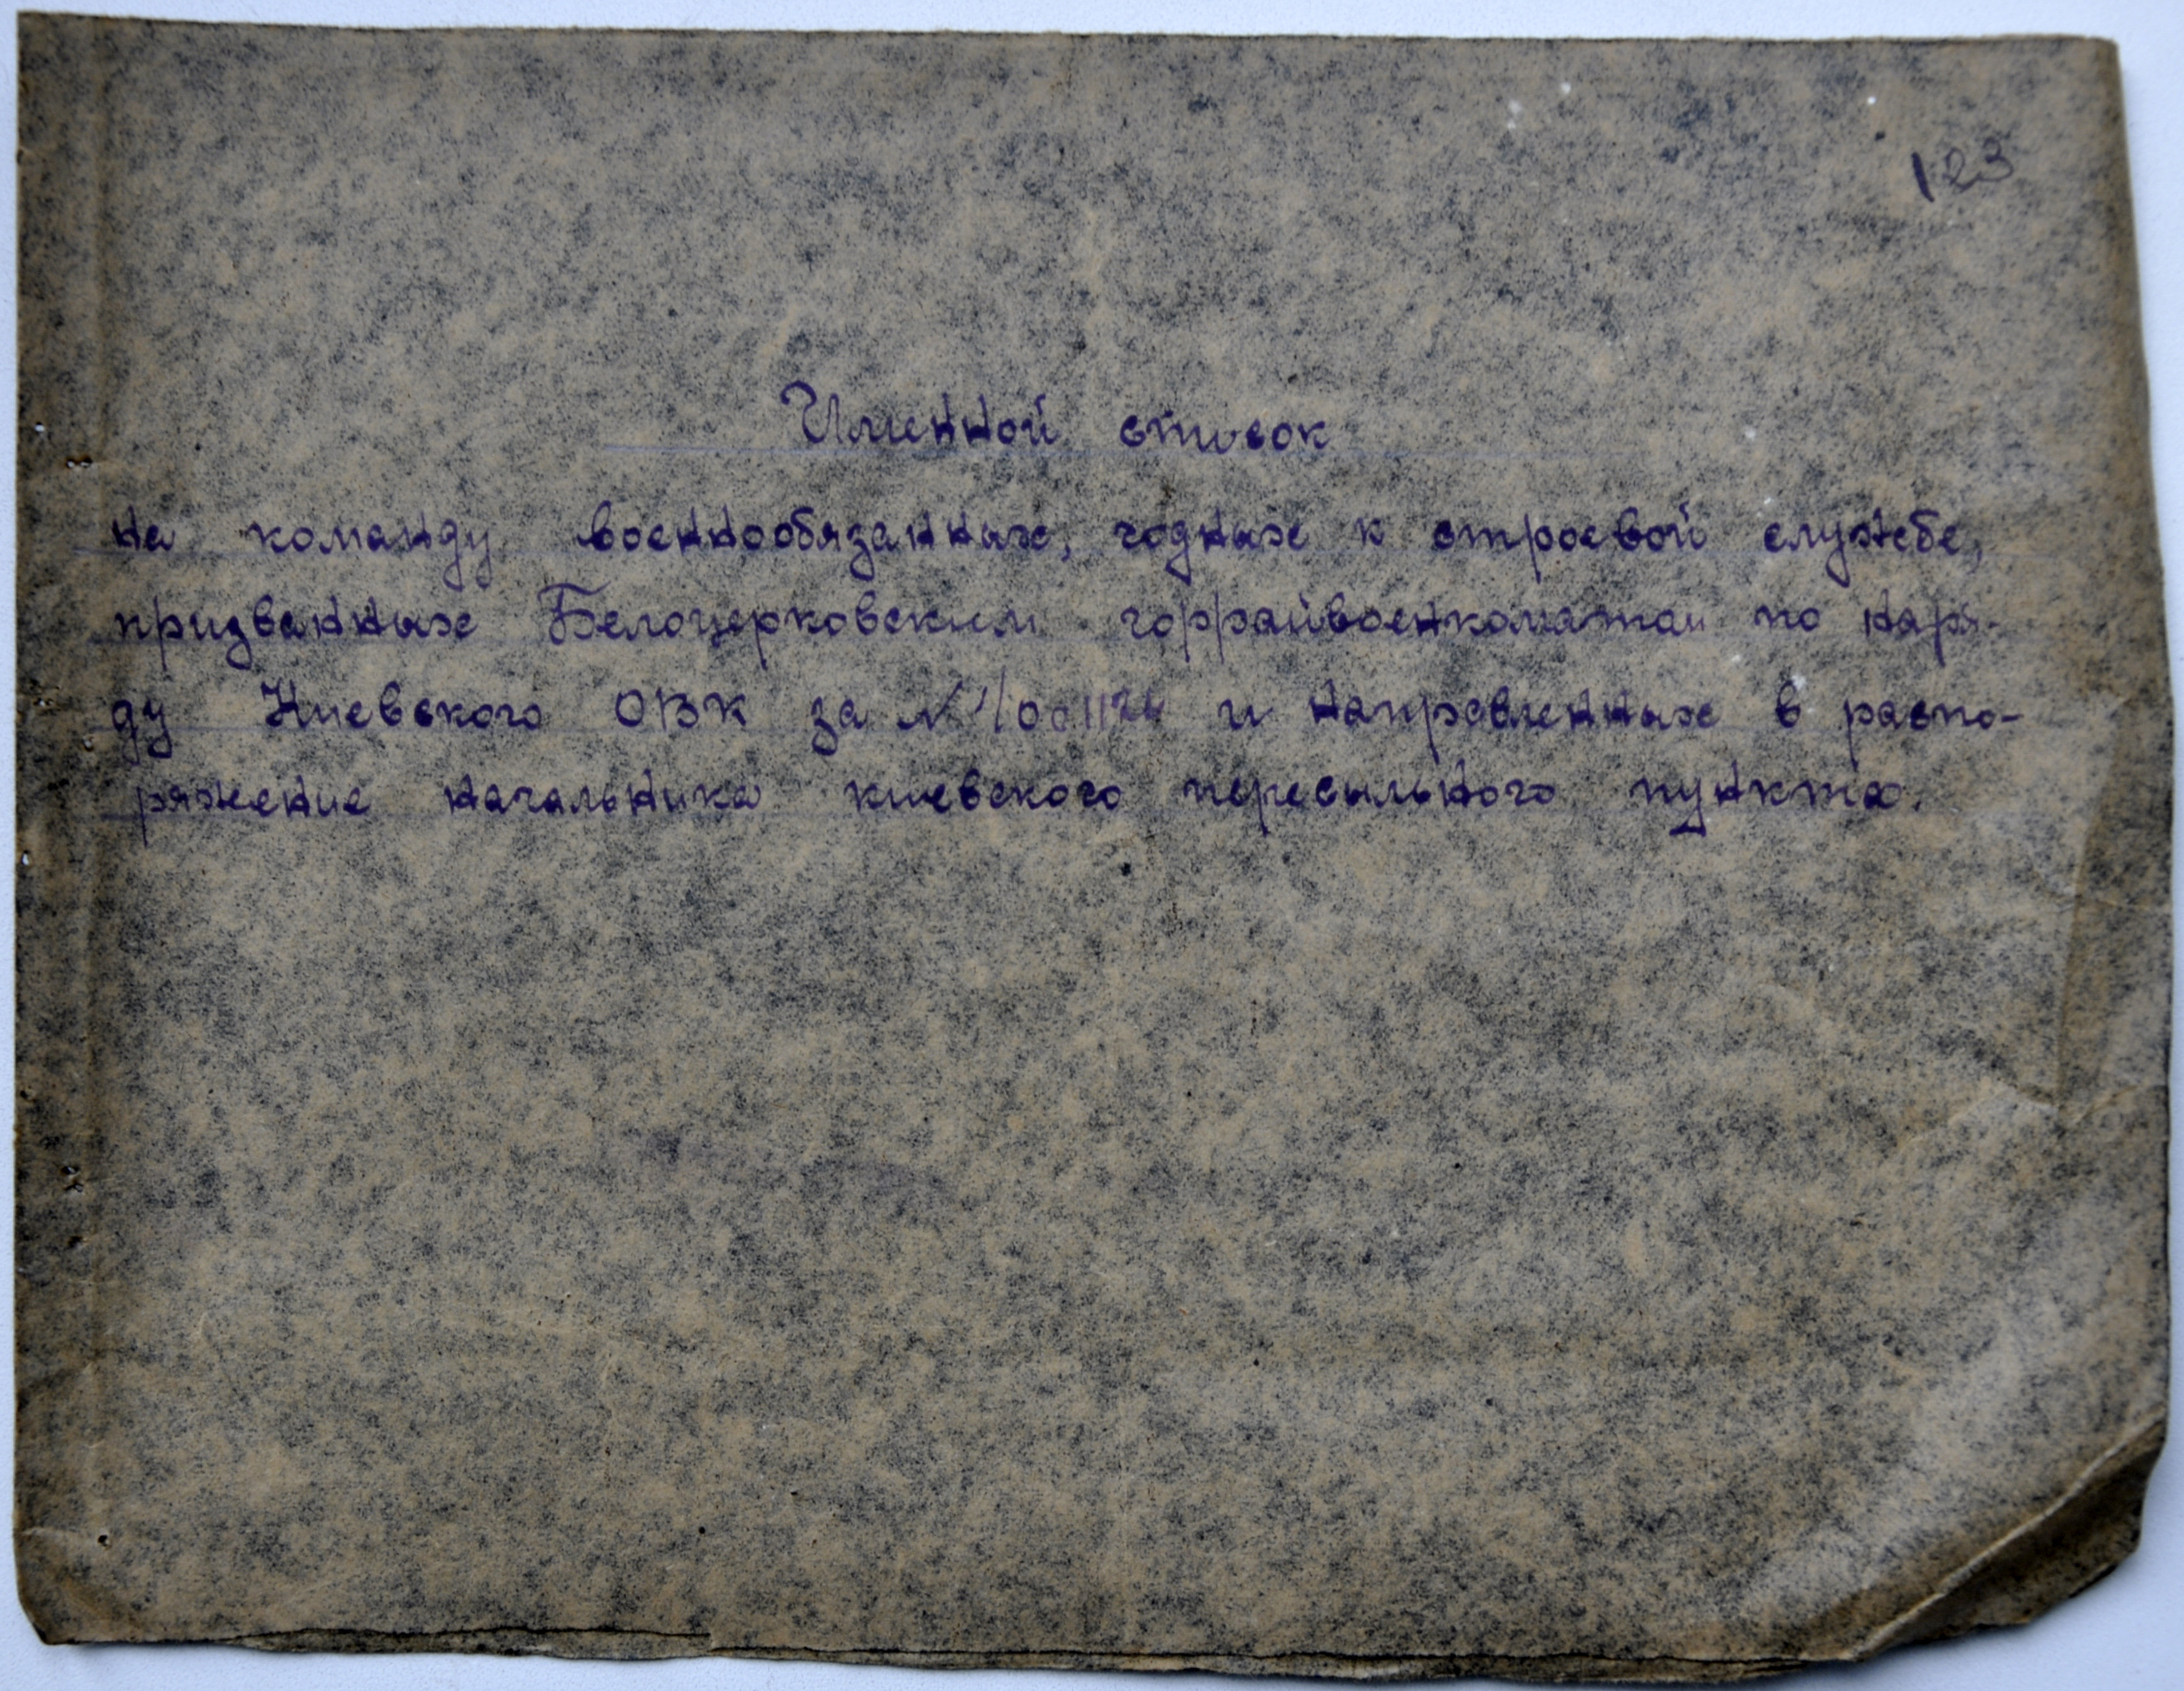 123
Именной список
на команду военнообязанных, годных к строевой службе,
призванных Белоцерковским горрайвоенкоматом по наря-
ду Киевского ОВК за № и направленных в распо-
ряжение начальника киевского пересыльного пункта.